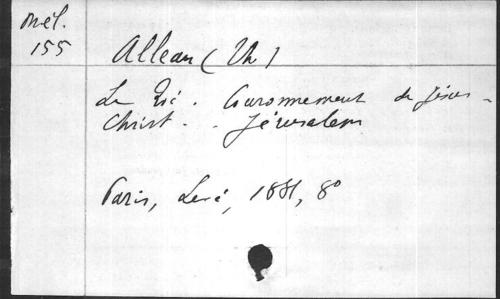 Mél.
155
Alleau (Th)
Le Couronnement de Jésus-
Christ. . Jérusalem
Paris, Levé, 1881, 8°